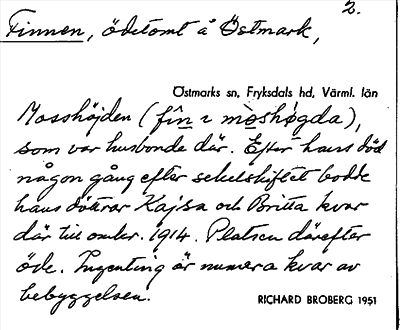 2.
Finnen, ödetomt å Östmark,
Östmarks sn, Fryksdals hd, Värml. län
Mosshöjden (fin i moshøgda),
som var husbonde där. Efter hans död
någon gång efter sekelskiftet bodde
hans döttrar Kajsa och Britta kvar
där till omkr. 1914. Platsen därefter
öde. Ingenting är numera kvar av
bebyggelsen.
RICHARD BROBERG 1951